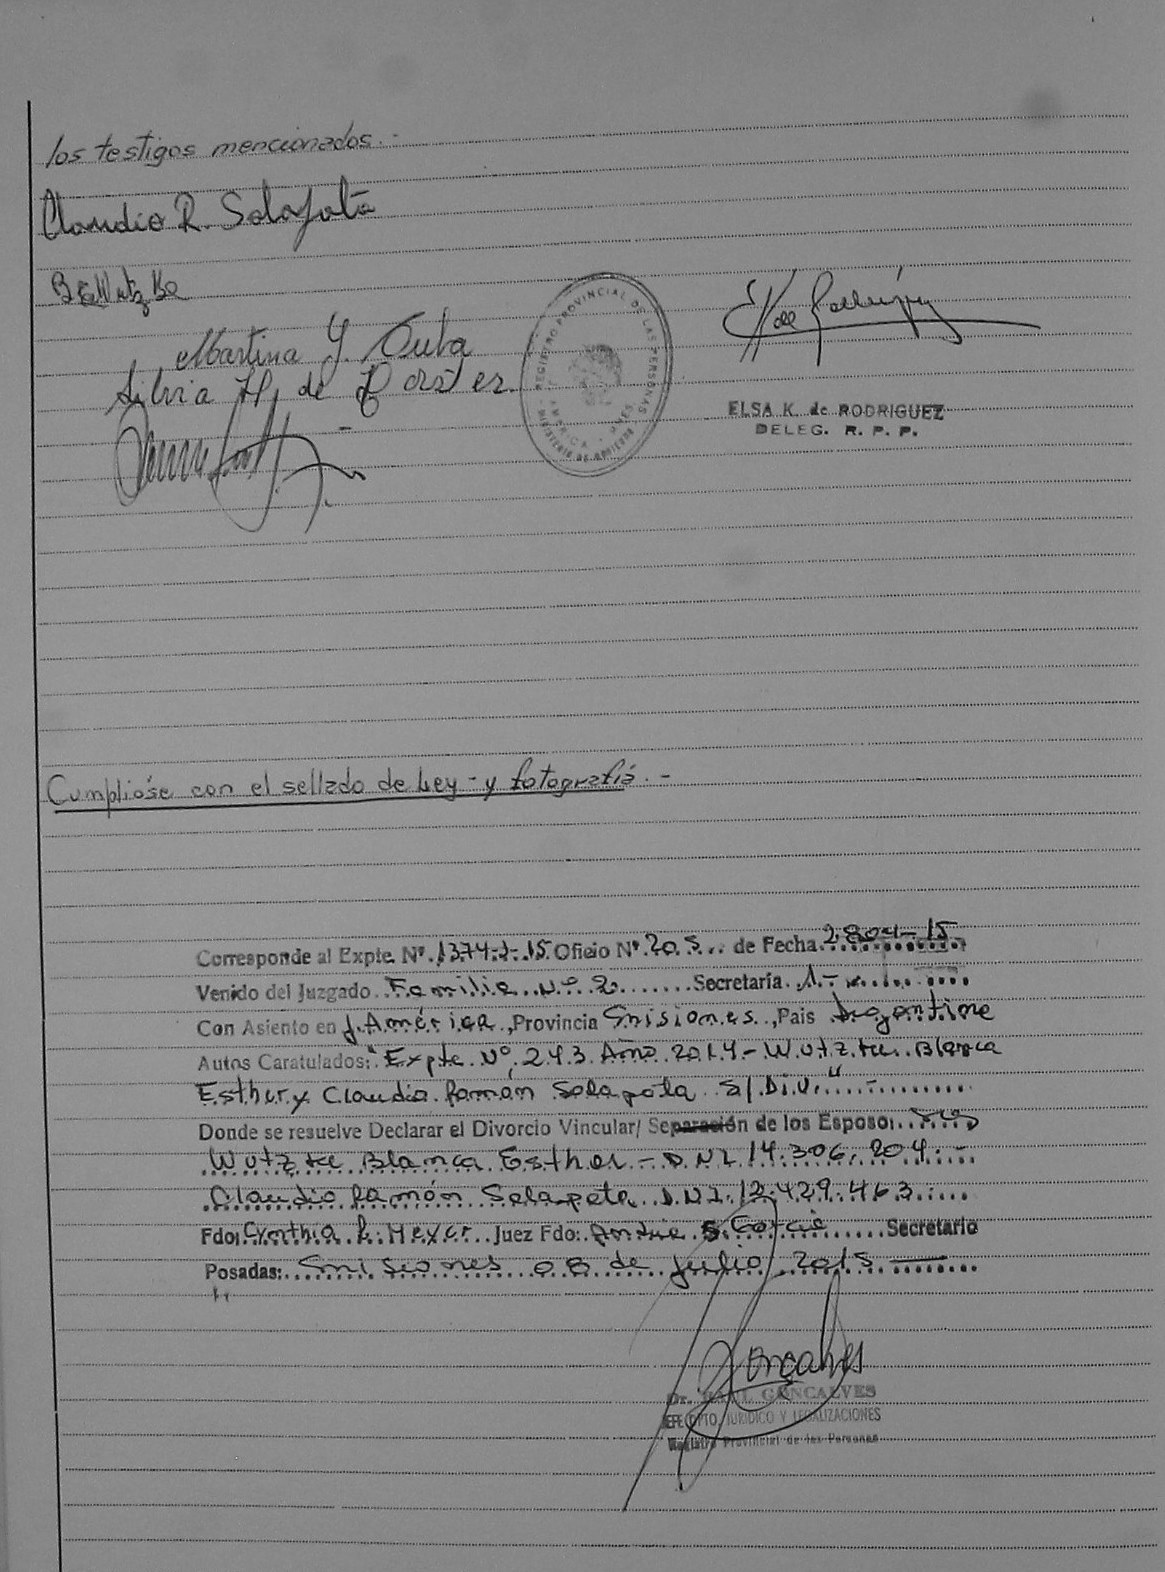 los testigos mencionados.-
Claudio R. Solapota
BEWutzke
Martina Y. Cuba
Silvia H. de
REGISTRO PROVINCIAL DE LAS PERSONAS
AMERICA - MNES
MINISTERIO DE
ELSA K. de RODRIGUEZ
DELEG. R. P. P.
Cumplióse con el sellado de Ley - y fotografía.-
Corresponde al Expte. Nº 1374-J-15 Oficio Nº 205 de Fecha 28-04-15
Venido del Juzgado Familia Nº 2 Secretaría 1-
Con Asiento en J. América, Provincia Misiones, Pais Argentina
Autos Caratulados: "Expte Nº 243 Año 2014 - Wutzke Blanca
Esther y Claudio Ramón Solapota S/ Div." -
Donde se resuelve Declarar el Divorcio Vincular/ Separación de los Esposos
Wutzke Blanca Esther - DNI 14.306.204.-
Claudio Ramón Solapota DNI. 12.429.463.
Fdo: Cynthia R. Meyer Juez Fdo: Secretario
Posadas: Misiones 08 de Julio 2015
Goncalves
Dr. RAUL GONCALVES
JEFE DPTO. JURIDICO Y LEGALIZACIONES
Registro Provincial de las Personas